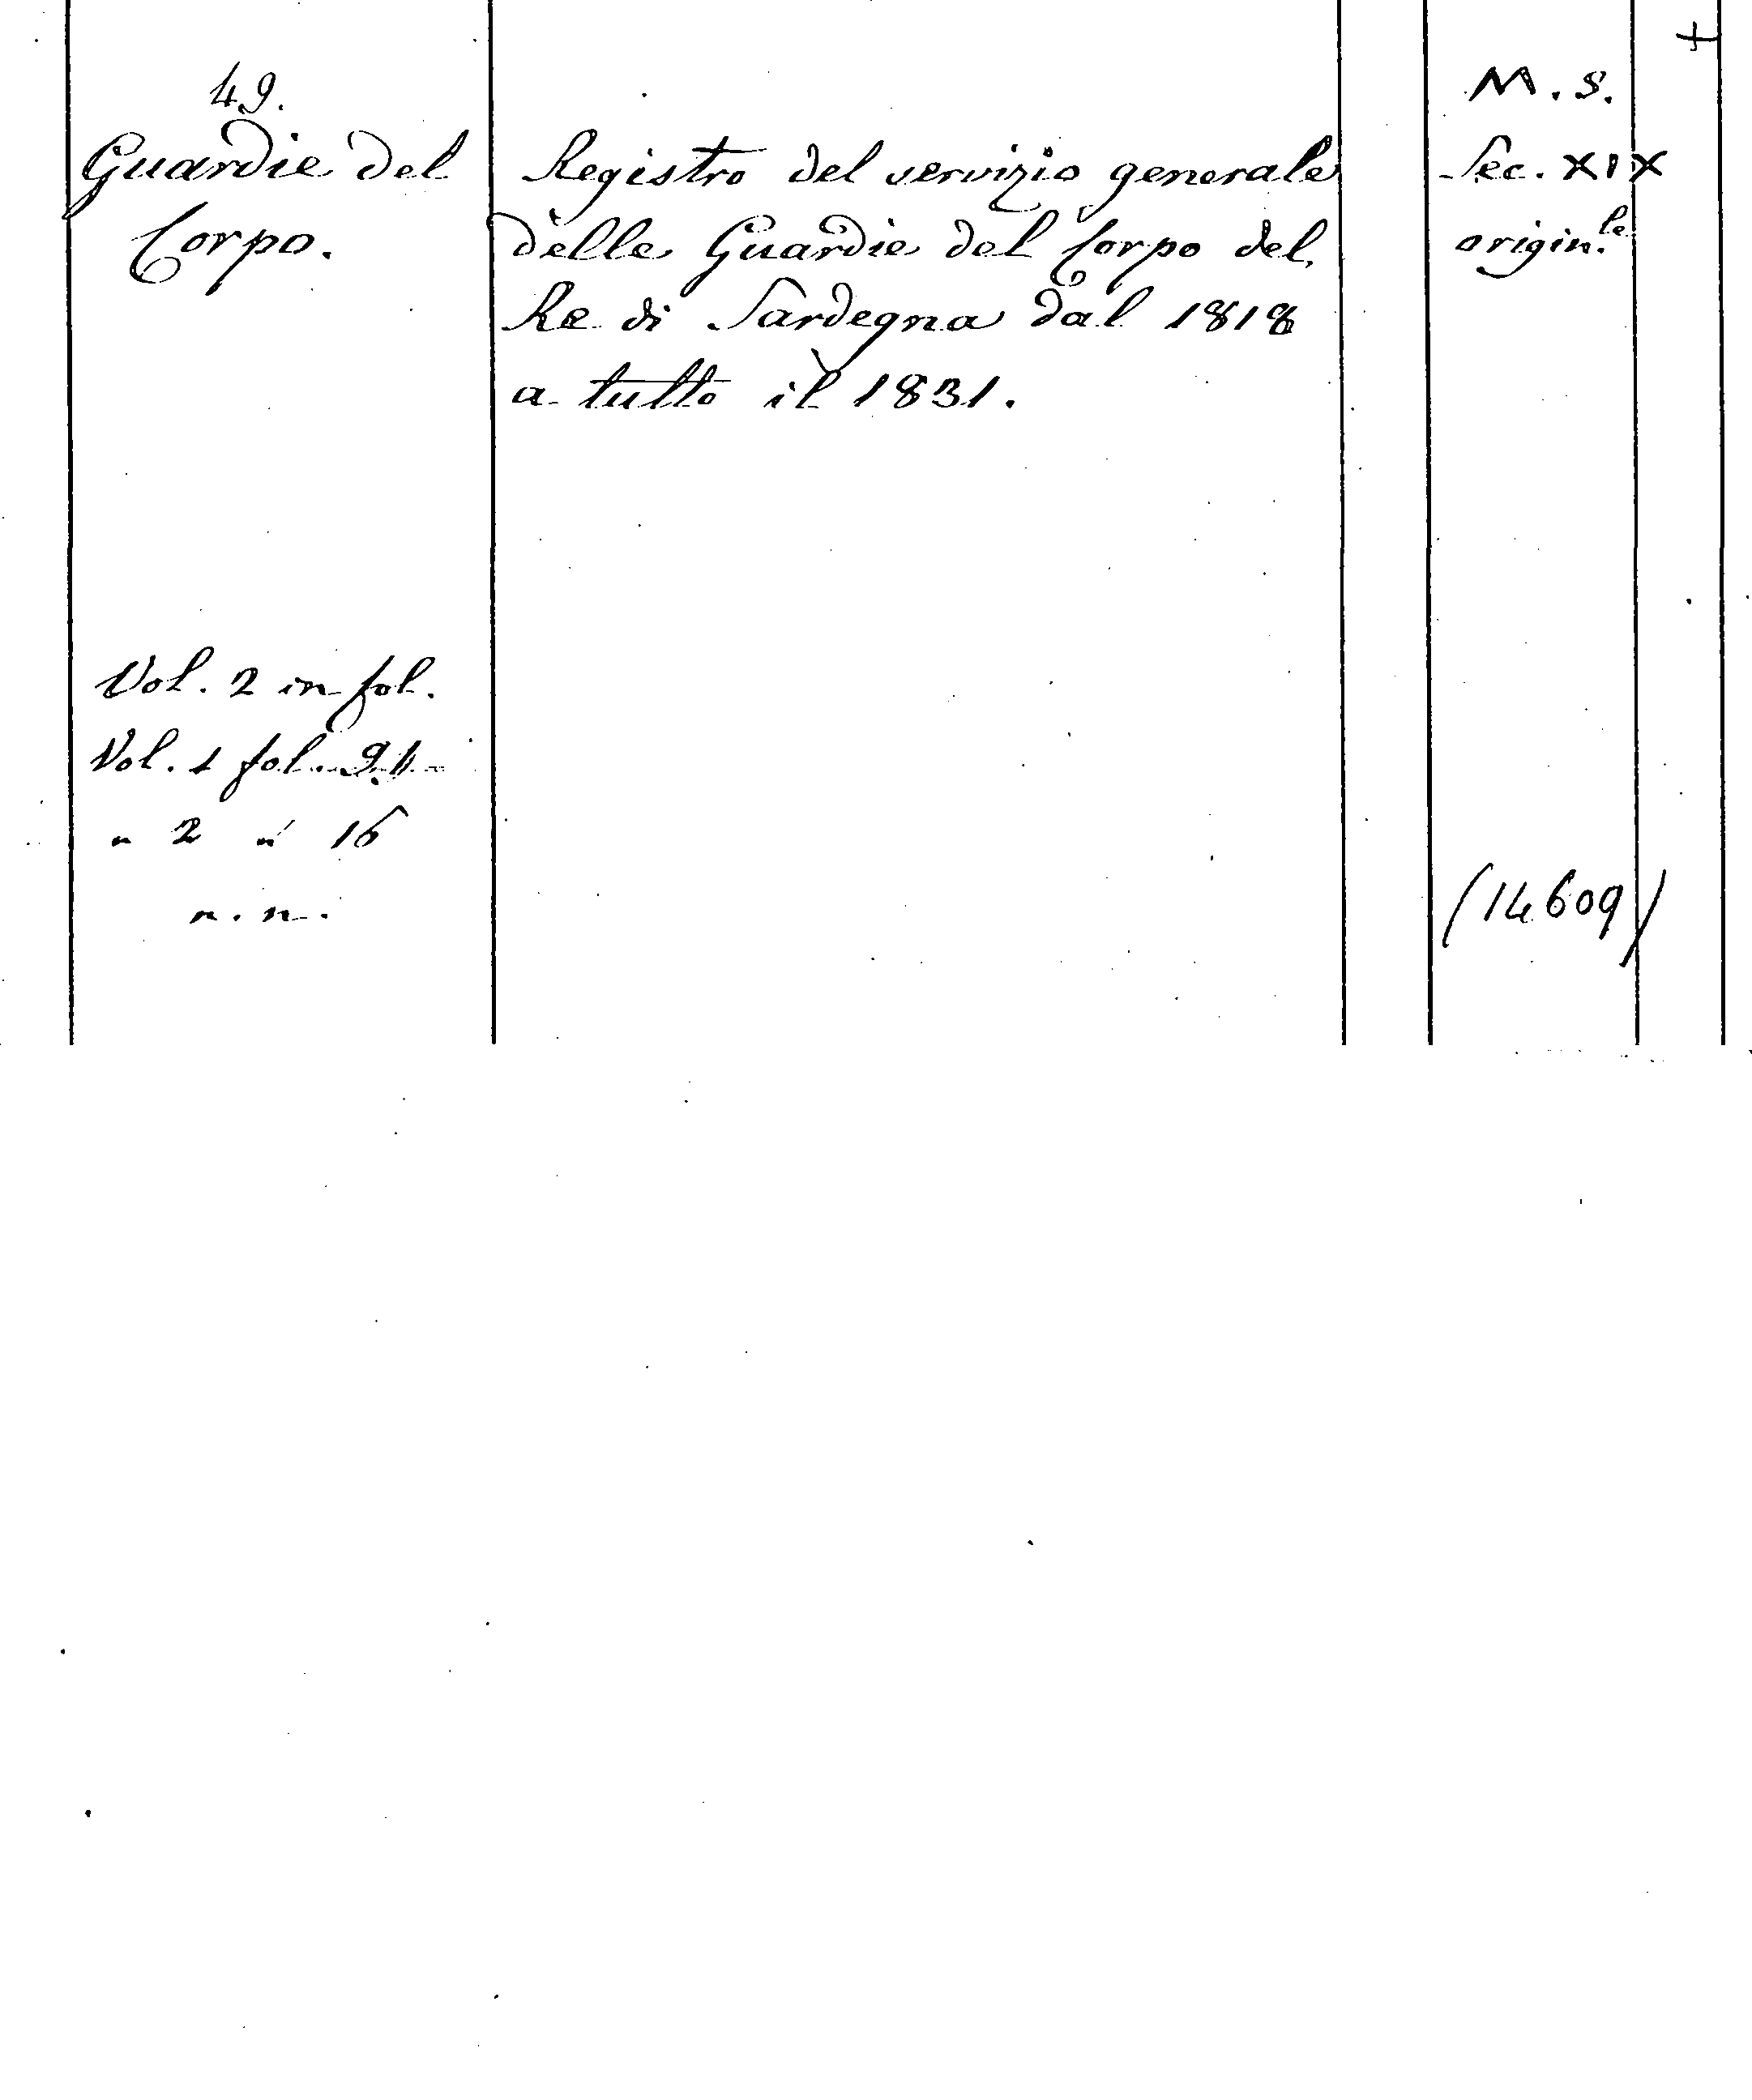 49.
Guardie del
Corpo.
Vol. 2 in fol.
Vol. 1 fol. 94
" 2 " 16
n. n.
Registro del servizio generale
delle Guardie del Corpo del
Re di Sardegna dal 1818
a tutto il 1831.
+
M. S.
Sec. XIX
origin.le
(14609)